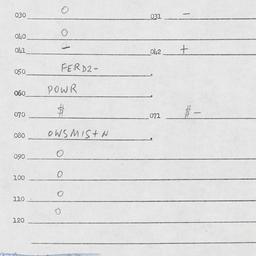 030 0 031 -
040 0
041 - 042 +
050 FERD2-
060 POWR
070 $ 071 $-
080 OWSMIS+N
090 0
100 0
110 0
120 0